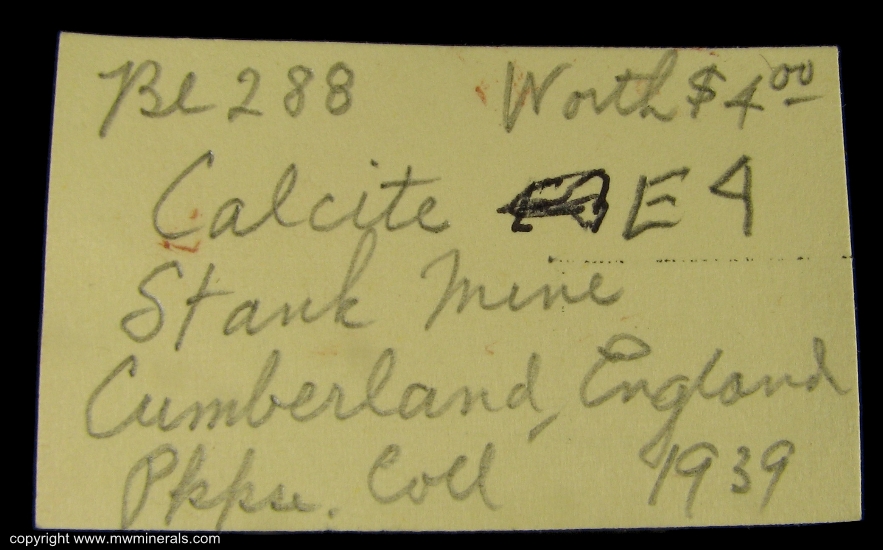 Be 288 Worth $4.00
Calcite E4
Stank Mine
Cumberland, England
Coll 1939
copyright www.mwminerals.com